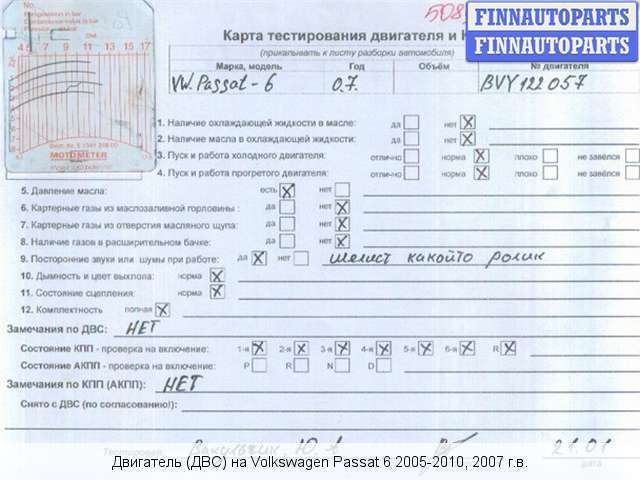 508
FINNAUTOPARTS
FINNAUTOPARTS
Карта тестирования двигателя и К
(прикалывать к листу разборки автомобиля)
Марка, модель Год Объём № двигателя
VW. Passat-6 0.7. BVY122057
No.
4 5 7 9 11 13 15 17
MOTOMETER
1. Наличие охлаждающей жидкости в масле: да нет X
2. Наличие масла в охлаждающей жидкости: да нет X
3. Пуск и работа холодного двигателя: отлично норма X плохо не завёлся
4. Пуск и работа прогретого двигателя: отлично норма X плохо не завёлся
5. Давление масла: есть X нет
6. Картерные газы из маслозаливной горловины : да нет X
7. Картерные газы из отверстия масляного щупа: да нет X
8. Наличие газов в расширительном бачке: да нет X
9. Посторонние звуки или шумы при работе: да X нет шелист какойто ролик
10. Дымность и цвет выхлопа: норма X
11. Состояние сцепления: норма X
12. Комплектность полная X
Замечания по ДВС: НЕТ
Состояние КПП - проверка на включение: 1-я X 2-я X 3-я X 4-я X 5-я X 6-я X R X
Состояние АКПП - проверка на включение: P R N D
Замечания по КПП (АКПП): НЕТ
Снято с ДВС (по согласованию!):
Тестировал 21.01
дата
Двигатель (ДВС) на Volkswagen Passat 6 2005-2010, 2007 г.в.